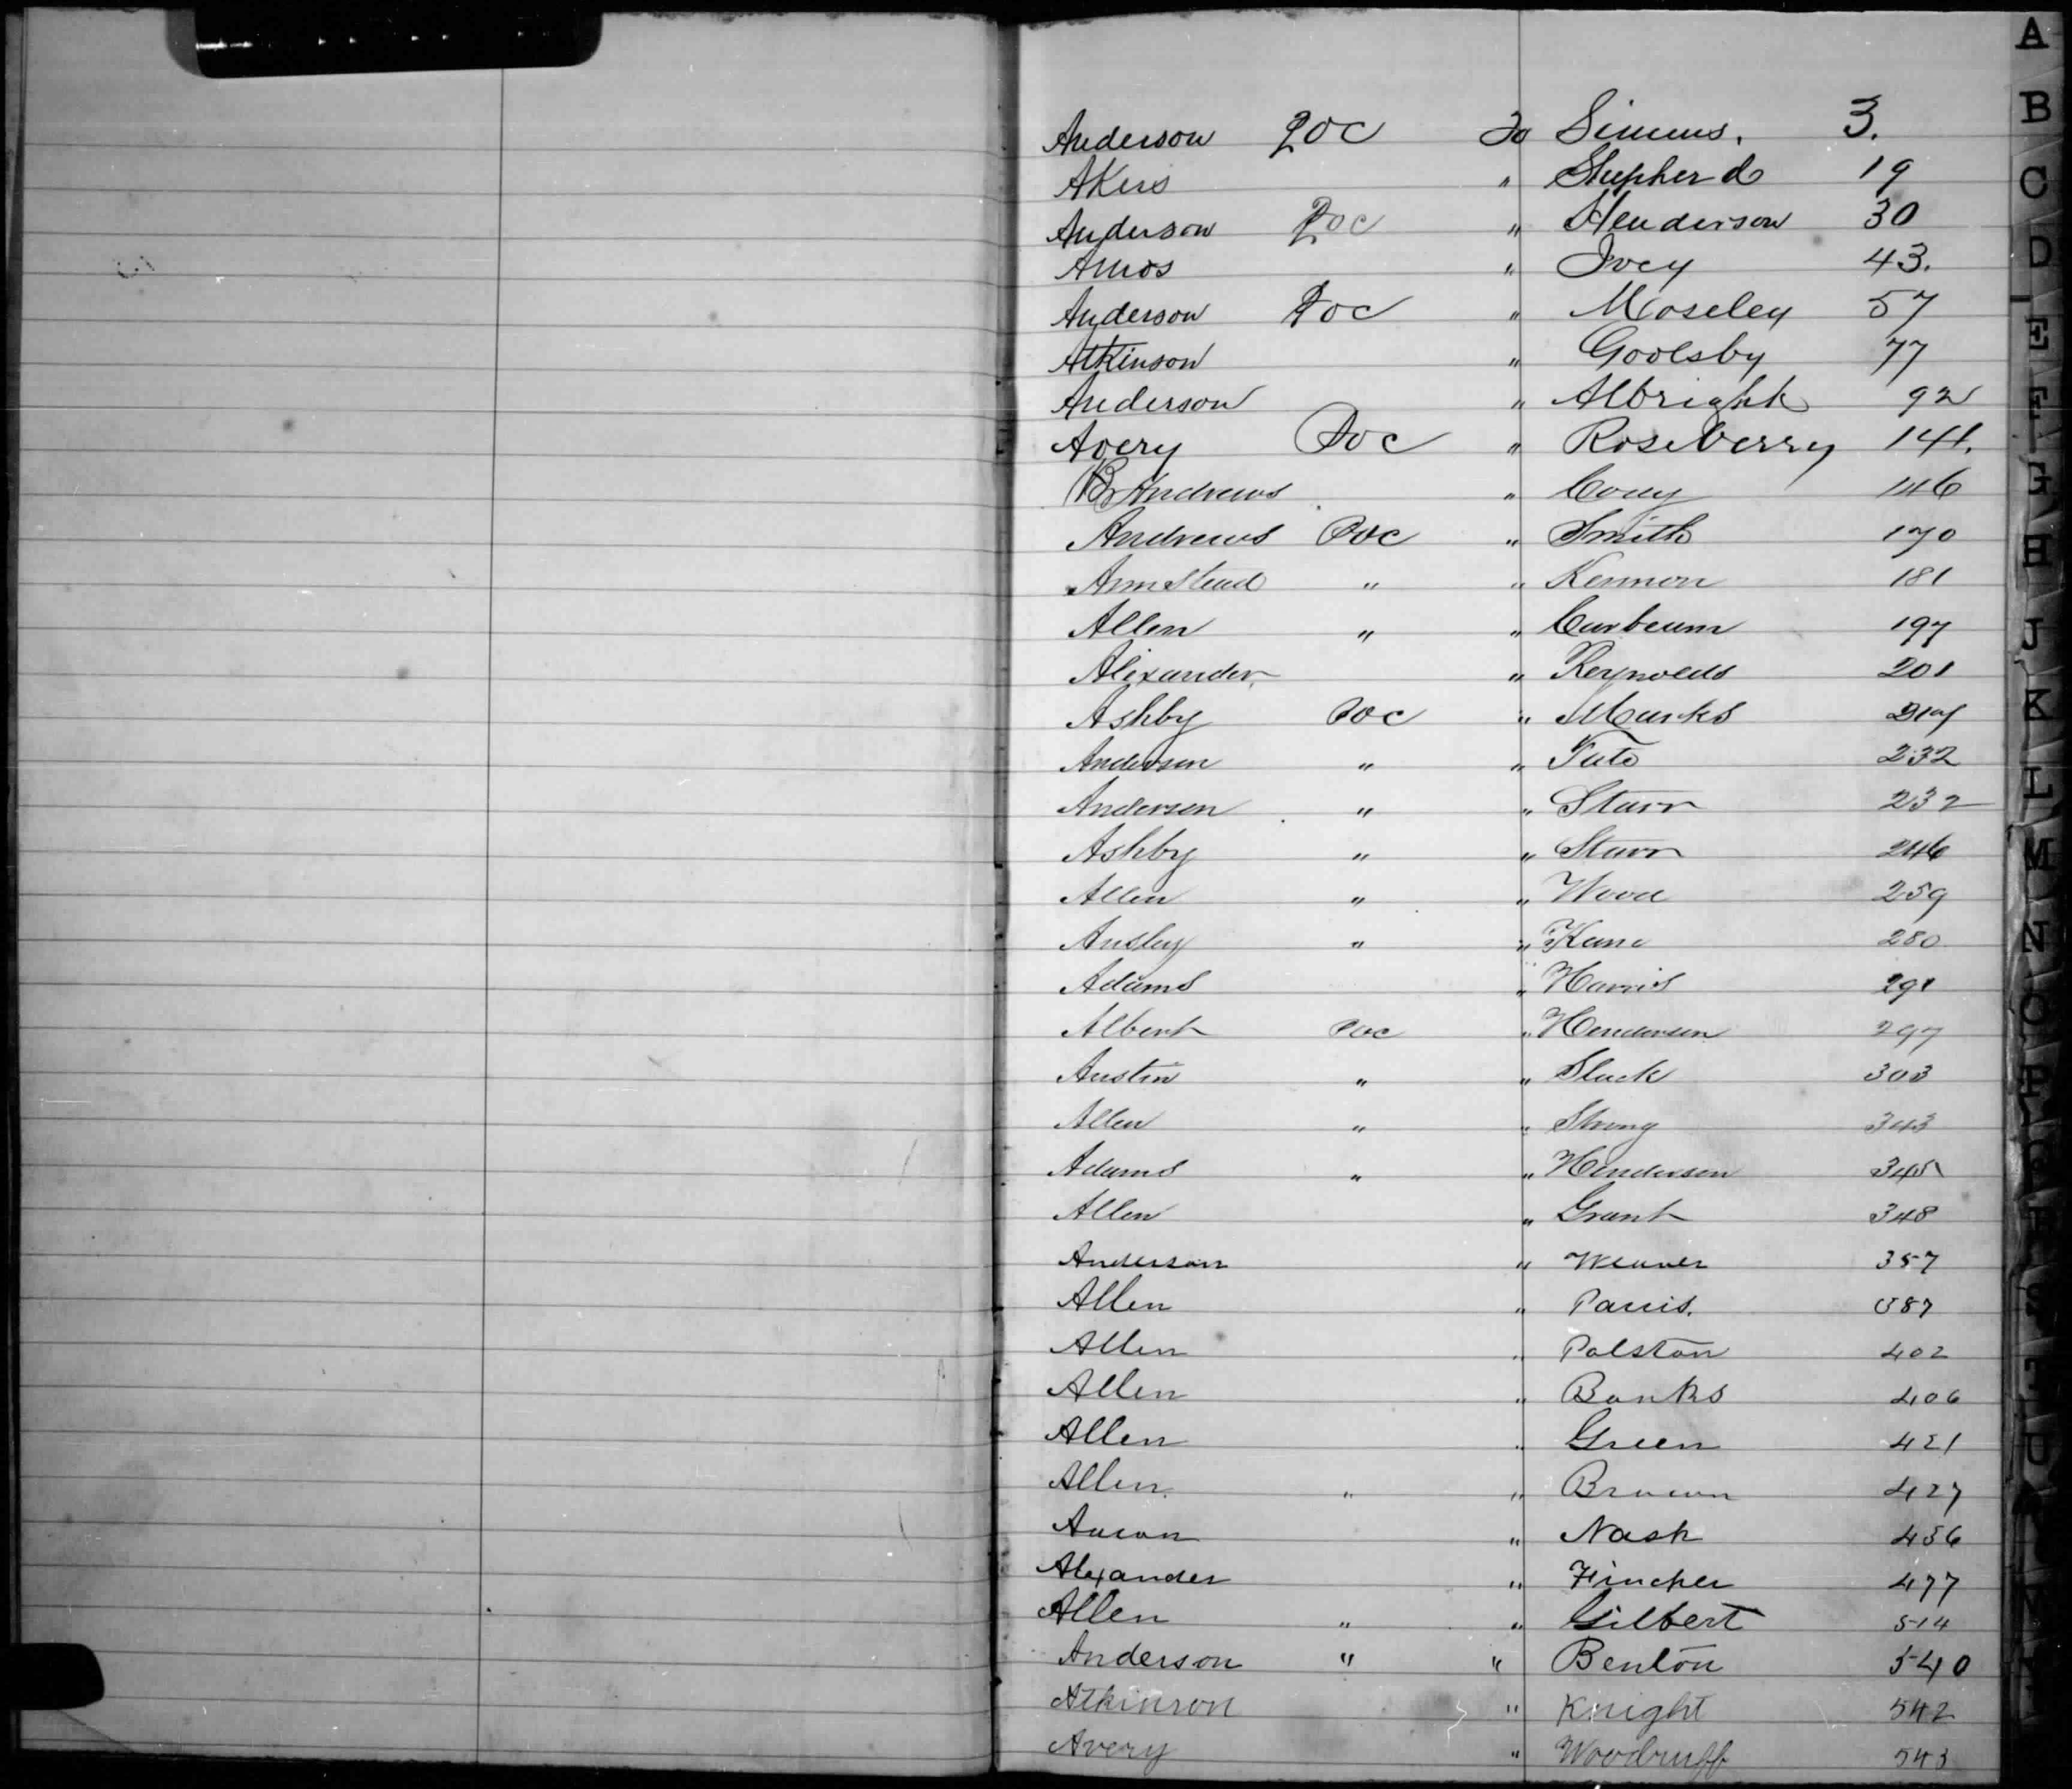 Anderson Poc To Simms. 3.
Akers " Shepherd 19
Anderson Poc " Henderson 30
Amos " Ivey 43.
Anderson Poc " Moseley 57
Atkinson " Goolsby 77
Anderson " Albright 92
Avery Poc " Roseberry 141.
Andrews " 146
Andrews Poc " Smith 170
Armstead " " Kennon 181
Allen " " Curbeum 197
Alexander " Reynolds 201
Ashby Poc " Marks
Anderson " " Tate 232
Anderson " " Starr 232
Ashby " " Starr 246
Allen " " Wood 259
Ansley " " Kane 280
Adams " Harris 291
Albert Poc " Henderson 297
Austin " " Slack 303
Allen " " Strong 343
Adams " " Henderson 345
Allen " Grant 348
Anderson " Weaver 357
Allen " Parris. 387
Allen " Polston 402
Allen " Banks 406
Allen " Green 421
Allen " " Brown 427
Aaron " Nash 456
Alexander " Fincher 477
Allen " " Gilbert 514
Anderson " " Benton 540
Atkinson " Knight 542
Avery " Woodruff 543
A
B
C
D
E
F
G
H
J
K
L
M
N
O
P